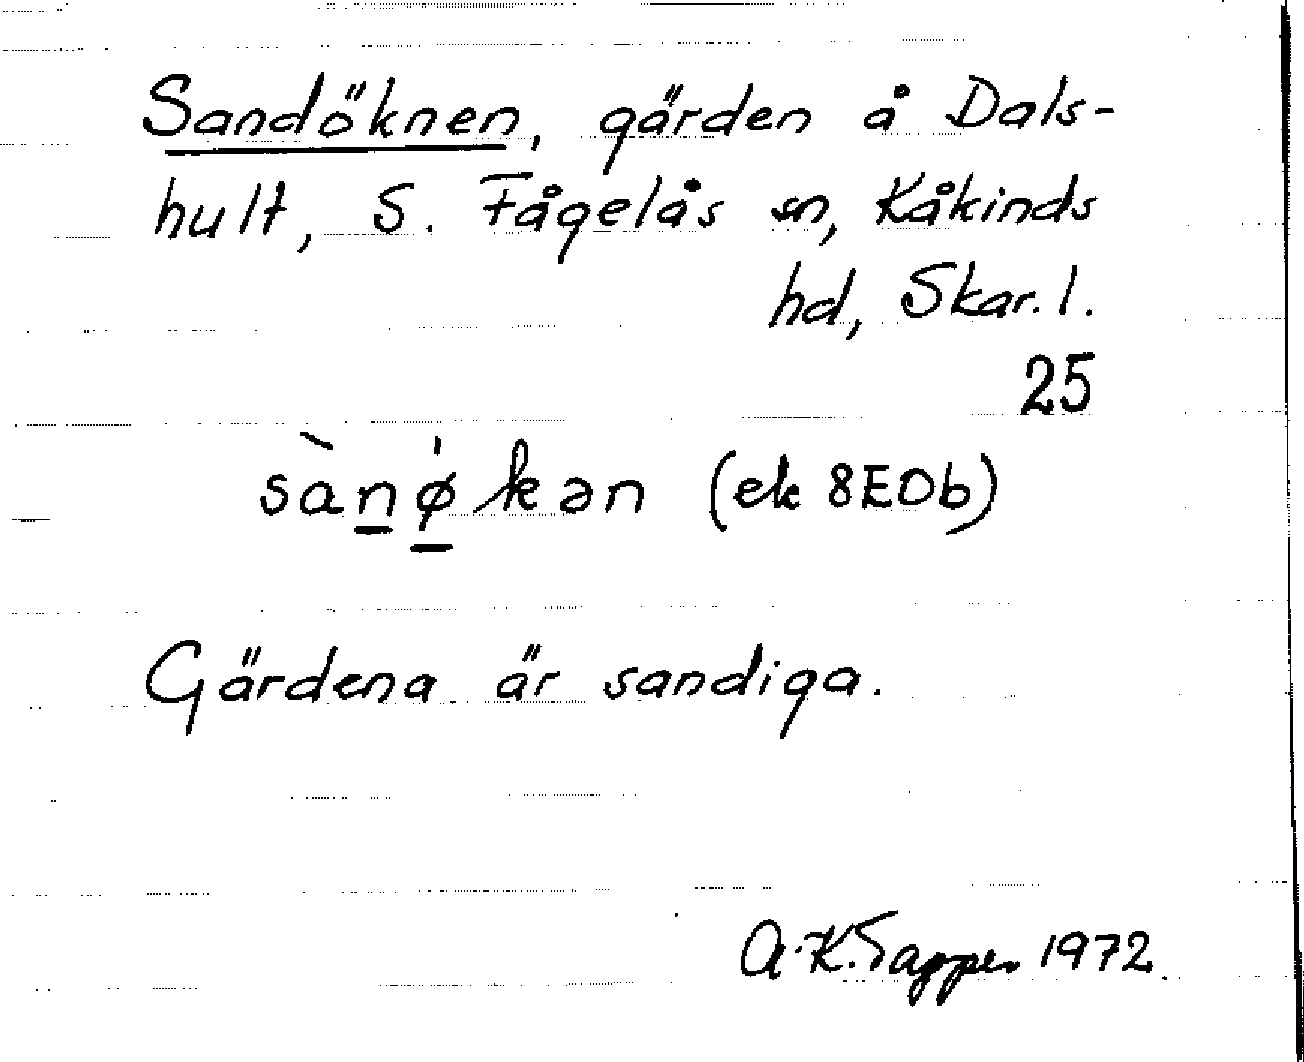 Sandöknen, gärden å Dals-
hult, S. Fågelås sn, Kåkinds
hd, Skar. l.
25
sànø̱kən (ek 8E0b)
Gärdena är sandiga.
A.K. Tapper 1972